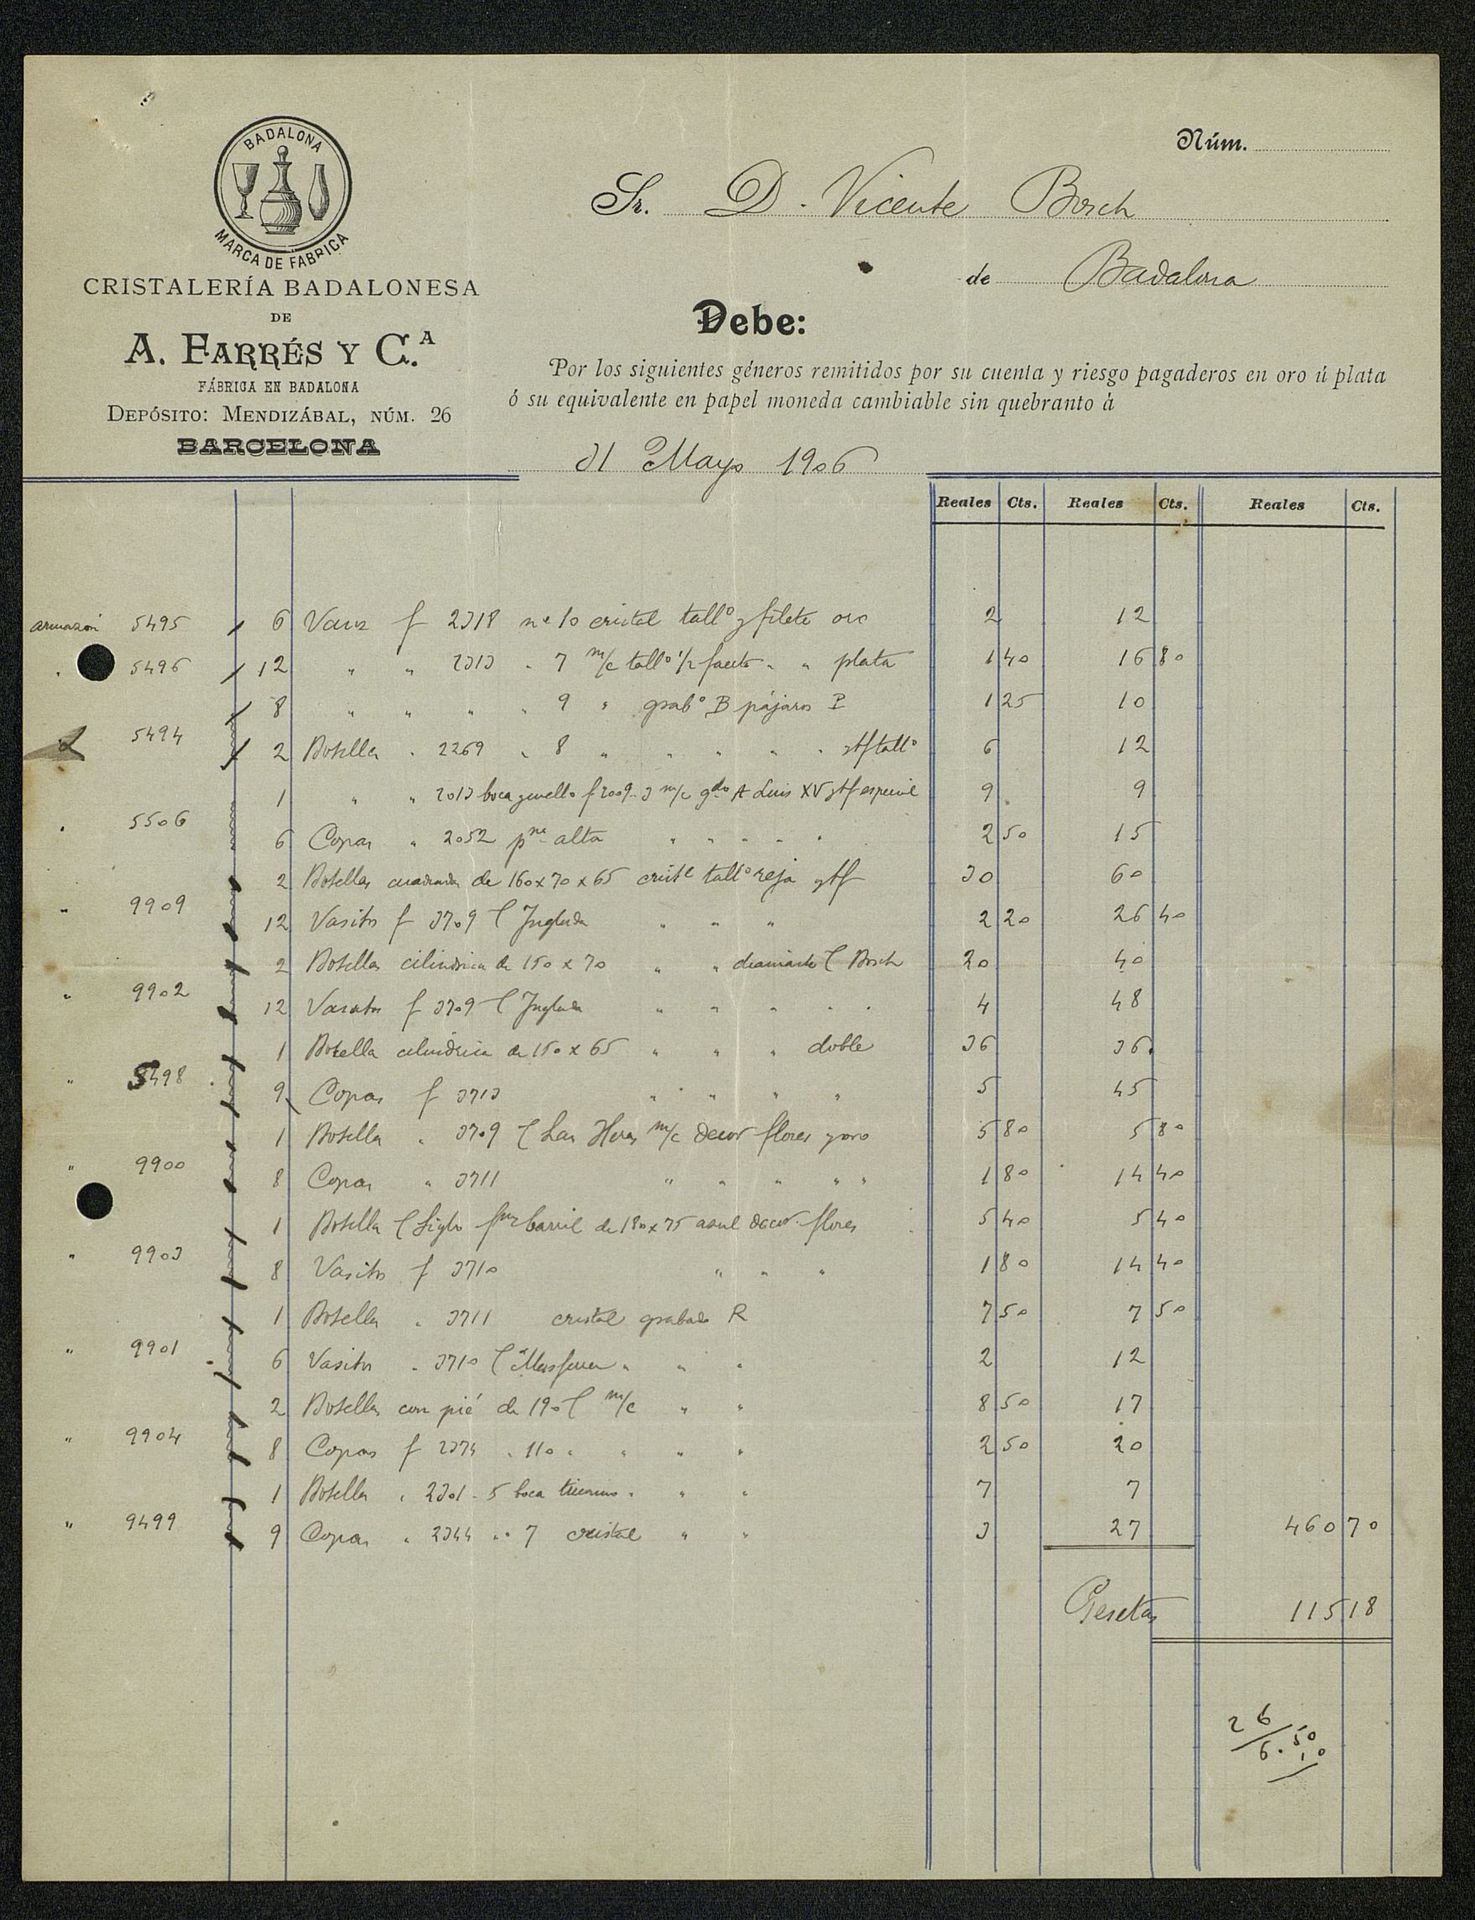 BADALONA
MARCA DE FÁBRICA
CRISTALERÍA BADALONESA
DE
A. FARRÉS Y C.A
FÁBRICA EN BADALONA
DEPÓSITO: MENDIZÁBAL, NÚM. 26
BARCELONA
Núm.
Sr. D. Vicente Bosch
de Badalona
Debe:
Por los siguientes géneros remitidos por su cuenta y riesgo pagaderos en oro ú plata
ó su equivalente en papel moneda cambiable sin quebranto á
31 Mayo 1906
Reales Cts. Reales Cts. Reales Cts.
armazón 5495 6 Vasos f 2318 nº 10 cristal tallº y filete oro 2 12
" 5496 12 " " 2313 " 7 m/c tallº 1/2 " " plata 1 40 16 80
8 " " " " 9 " grabº B pájaros P 1 25 10
5494 2 Botellas " 2269 " 8 " " " " " ytf tallº 6 12
1 " " 2013 boca f 2009 - 3 m/c gdo A Luis XV ytf especial 9 9
" 5506 6 Copas " 2052 alta " " " " " 2 50 15
2 Botellas cuadradas de 160 x 70 x 65 tallº reja ytf 30 60
" 9909 12 Vasitos f 3709 ( Inglada " " " 2 20 26 40
2 Botellas cilindricas de 150 x 70 " " diamante ( Bosch 20 40
" 9902 12 Vasitos f 3709 ( Inglada " " " " " 4 48
1 Botella cilindrica de 150 x 65 " " " doble 36 36
" 5498 9 Copas f 3713 " " " " 5 45
1 Botella " 3709 ( Las Heras m/c decor flores y oro 5 80 5 80
" 9900 8 Copas " 3711 " " " " " 1 80 14 40
1 Botella ( Siglo barril de 180 x 75 azul decor flores 5 40 5 40
" 9903 8 Vasitos f 3710 " " " 1 80 14 40
1 Botella " 3711 cristal grabado R 7 50 7 50
" 9901 6 Vasitos " 3710 ( " " " 2 12
2 Botellas con pié de 190 ( m/c " " 8 50 17
" 9904 8 Copas f 2374 " 110 " " " " 2 50 20
1 Botella " 2301 - 5 boca " " " 7 7
" 9499 9 Copas " 2344 " 7 cristal " " 3 27 460 70
Pesetas 115 18
26
6.50
10